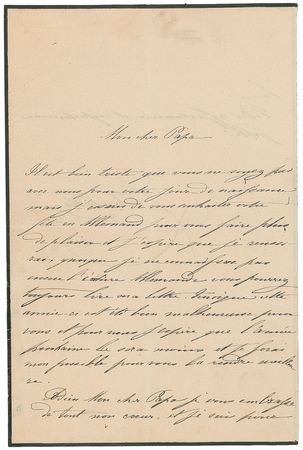 Mon cher Papa
Il est bien triste que vous ne soyez pas
avec nous pour votre jour de naissance
mais j'essaie de vous souhaiter votre
fête en Allemand pour vous faire plus
de plaisir et j'espère que je réussi
rai; quoique je ne connaisse pas
encore l'écriture Allemande vous pourrez
toujours lire ma lettre. Puisque cette
année-ci est été bien malheureuse pour
vous et pour nous j'espère que l'année
prochaine le sera moins et je ferai
mon possible pour vous la rendre meilleu
re.
Adieu Mon cher Papa je vous embrasse
de tout mon cœur, et je suis pour